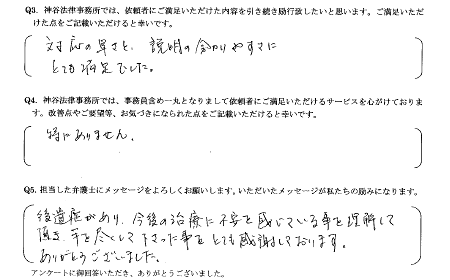 Q3. 神谷法律事務所では、依頼者にご満足いただけた内容を引き続き励行致したいと思います。ご満足いただ
けた点をご記載いただけると幸いです。
対応の早さと、説明の分かりやすさに
とても満足でした。
Q4. 神谷法律事務所では、事務員含め一丸となりまして依頼者にご満足いただけるサービスを心がけておりま
す。改善点やご要望等、お気づきになられた点をご記載いただけると幸いです。
特にありません。
Q5. 担当した弁護士にメッセージをよろしくお願いします。いただいたメッセージが私たちの励みになります。
後遺症があり、今後の治療に不安を感じている事を理解して
頂き、手を尽くして下さった事をとても感謝しております。
ありがとうございました。
アンケートに御回答いただき、ありがとうございました。